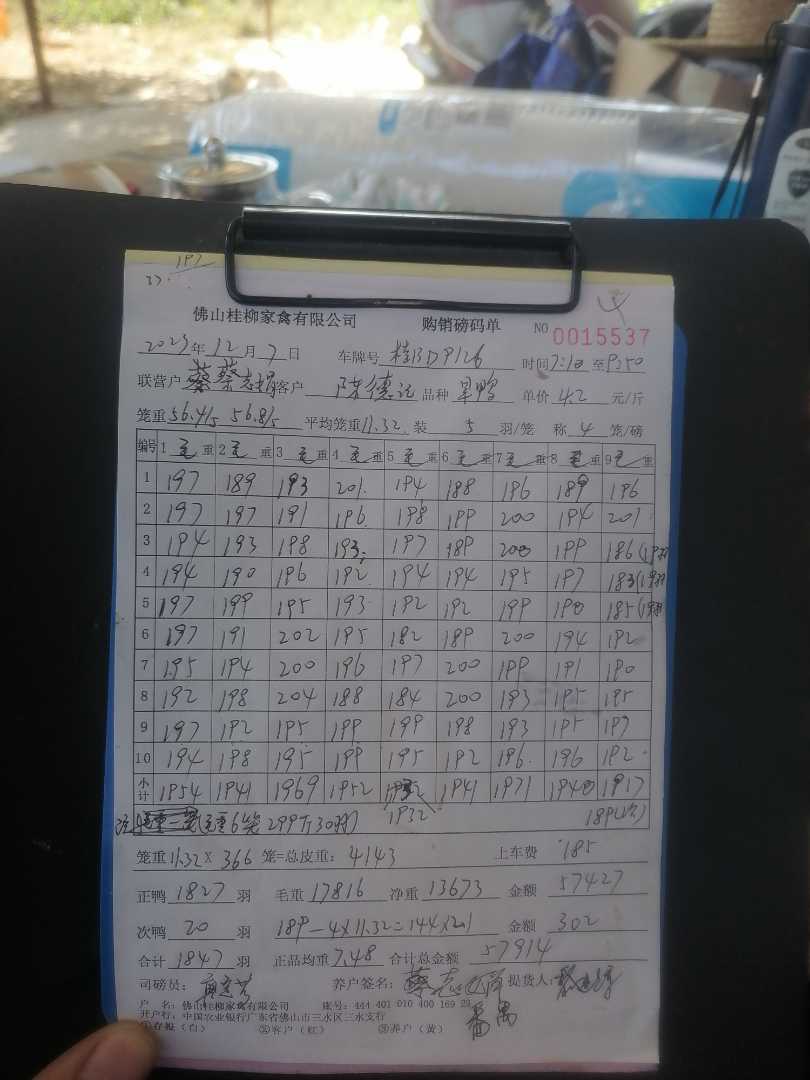 197
佛山桂柳家禽有限公司 购销磅码单 NO 0015537
2023年12月7日 车牌号 桂BD9126 时间7:10至9:50
联营户 客户 陈德记 品种 旱鸭 单价 4.2 元/斤
笼重56.4/5 56.8/5 平均笼重11.32 装 5 羽/笼 称 4 笼/磅
编号 1 毛重 2 毛重 3 毛重 4 毛重 5 毛重 6 毛重 7 毛重 8 毛重 9 毛重
1 197 189 193 201 194 188 196 189 196
2 197 197 191 196 198 199 200 194 201
3 194 193 198 193 197 189 200 199 186(19羽
4 194 190 196 192 194 194 195 197 183(19羽
5 197 199 195 193 192 192 199 190 185(19羽
6 197 191 202 195 182 189 200 194 192
7 195 194 200 196 197 200 199 191 190
8 192 198 204 188 184 200 193 195 195
9 197 192 195 199 199 198 193 195 197
10 194 198 195 199 195 192 196 196 192
小计 1954 1941 1969 1952 1932 1941 1971 1940 1917
毛重6笼 299斤30羽) 189(次)
笼重11.32X 366 笼=总皮重: 4143 上车费 185
正鸭 1827 羽 毛重 17816 净重 13673 金额 57427
次鸭 20 羽 189-4X11.32=144X2.1 金额 302
合计 1847 羽 正品均重 7.48 合计总金额 57914
司磅员: 养户签名: 提货人:
户 名: 佛山桂柳家禽有限公司 账号: 444 401 010 400 169 29
开户行: 中国农业银行广东省佛山市三水区三水支行 番禺
①存根(白) ②客户(红) ③养户(黄)